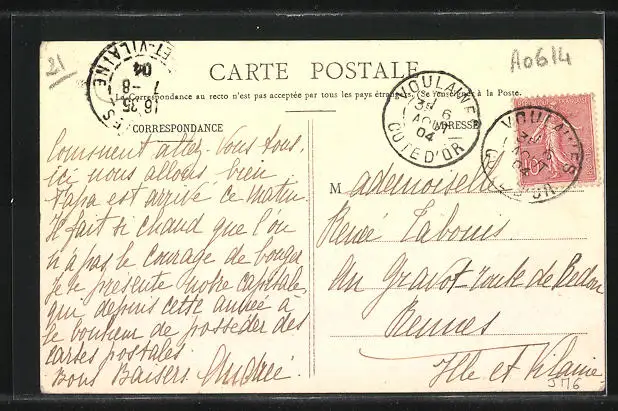 21
ET-VILAINE
16 35
7 -8
04
CARTE POSTALE
A0614
La Correspondance au recto n'est pas acceptée par tous les pays étrangers. (Se renseigner à la Poste.
CORRESPONDANCE
ADRESSE
VOULAINES
6
AOUT
04
COTE D'OR
VOULAINES
Comment allez-vous tous,
ici nous allons bien
Papa est arrivé ce matin.
Il fait si chaud que l'on
n'a pas le courage de bouger
Je te présente notre capitale
qui depuis cette année à
le bonheur de posséder des
cartes postales
Bons Baisers. Andrée.
Mademoiselle
Renée Labouis
Au Gravot route de Redon
Rennes
Ille et Vilaine